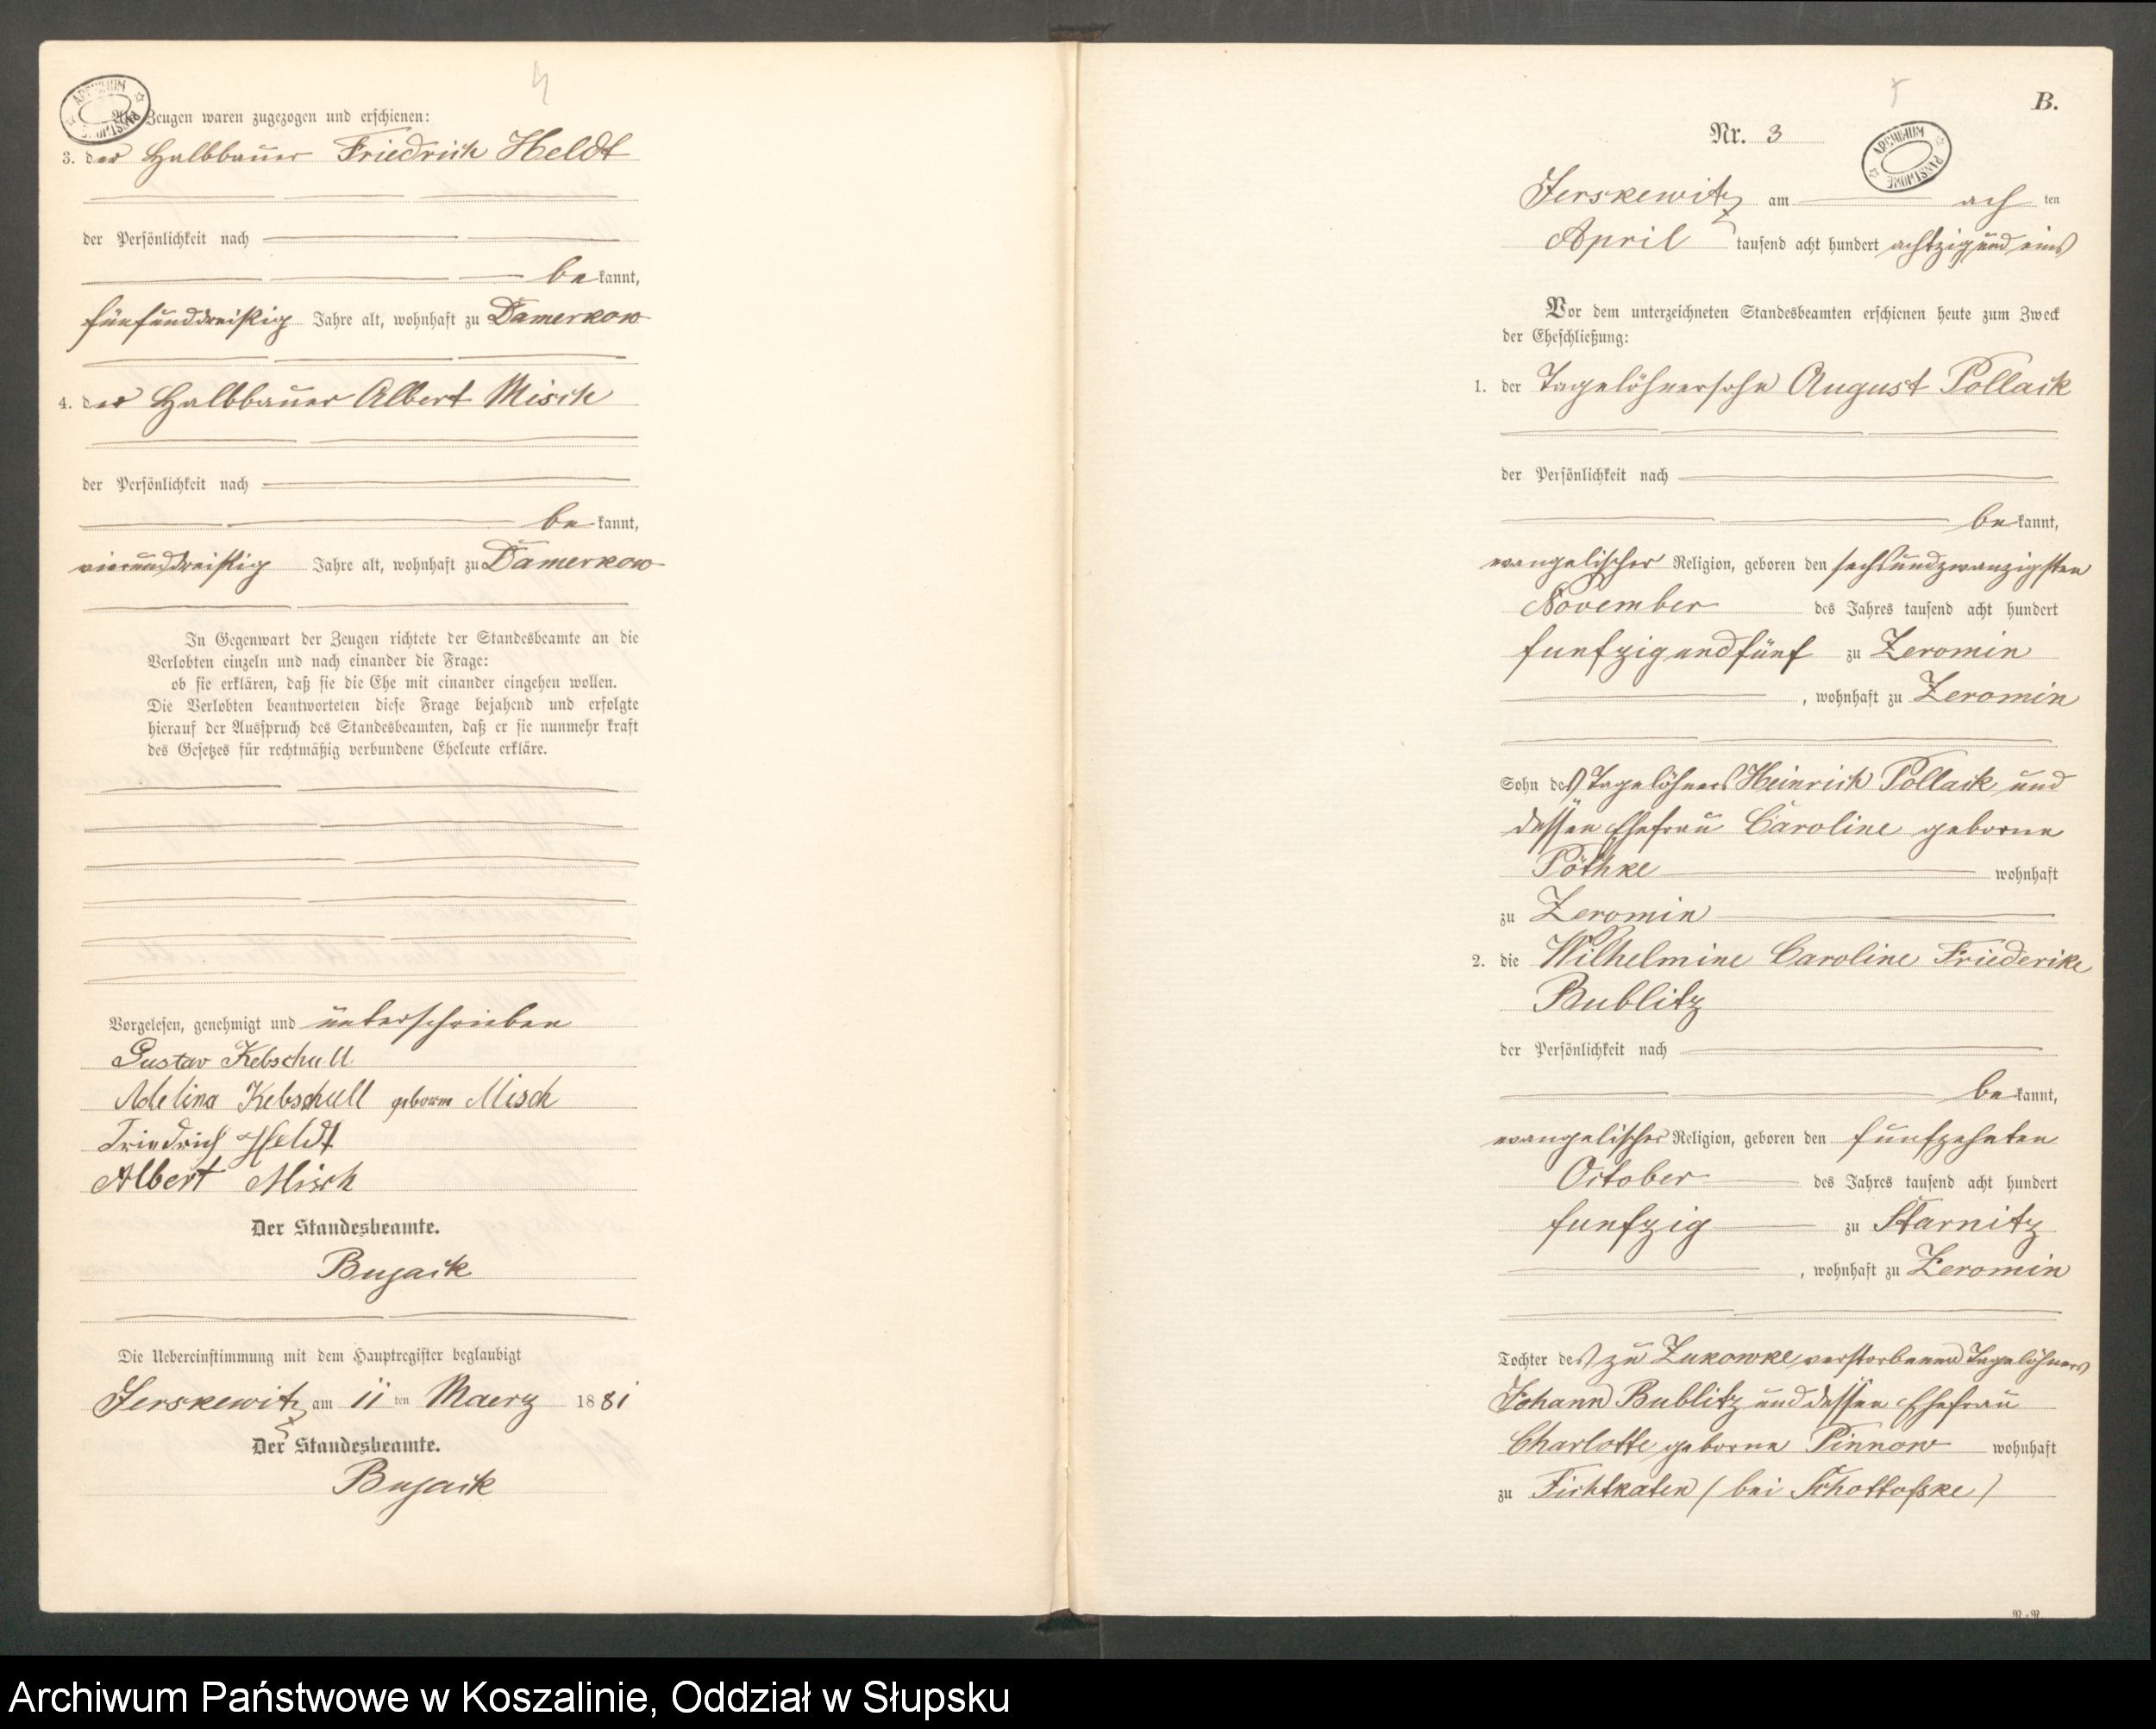 4
ARCHIWUM PAŃSTWOWE
Als Zeugen waren zugezogen und erschienen:
3. der Halbbauer Friedrich Heldt
der Persönlichkeit nach
bekannt,
fünfunddreißig Jahre alt, wohnhaft zu Damerkow
4. der Halbbauer Albert Misch
der Persönlichkeit nach
bekannt,
vierunddreißig Jahre alt, wohnhaft zu Damerkow
In Gegenwart der Zeugen richtete der Standesbeamte an die
Verlobten einzeln und nach einander die Frage:
ob sie erklären, daß sie die Ehe mit einander eingehen wollen.
Die Verlobten beantworteten diese Frage bejahend und erfolgte
hierauf der Ausspruch des Standesbeamten, daß er sie nunmehr kraft
des Gesetzes für rechtmäßig verbundene Eheleute erkläre.
Vorgelesen, genehmigt und unterschrieben
Gustav Kebschull
Adelina Kebschull geborne Misch
Friedrich Heldt
Albert Misch
Der Standesbeamte.
Bujack
Die Uebereinstimmung mit dem Hauptregister beglaubigt
Jerskewitz am 11 ten Maerz 1881
Der Standesbeamte.
Bujack
5
B.
Nr. 3
ARCHIWUM PAŃSTWOWE
Jerskewitz am ach ten
April tausend acht hundert achtzig und eins
Vor dem unterzeichneten Standesbeamten erschienen heute zum Zweck
der Eheschließung:
1. der Tagelöhnersohn August Pollack
der Persönlichkeit nach
bekannt,
evangelischer Religion, geboren den sechsundzwanzigsten
November des Jahres tausend acht hundert
funfzig und fünf zu Zeromin
, wohnhaft zu Zeromin
Sohn des Tagelöhners Heinrich Pollack und
dessen Ehefrau Caroline geborne
Pöthke wohnhaft
zu Zeromin
2. die Wilhelmine Caroline Friederike
Bublitz
der Persönlichkeit nach
bekannt,
evangelischer Religion, geboren den funfzehnten
October des Jahres tausend acht hundert
funfzig zu Starnitz
, wohnhaft zu Zeromin
Tochter des zu Zukowke verstorbenen Tagelöhners
Johann Bublitz und dessen Ehefrau
Charlotte geborne Pinnow wohnhaft
zu Fichtkaten / bei Schottofske /
Archiwum Państwowe w Koszalinie, Oddział w Słupsku